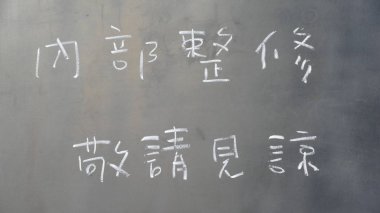 內部整修
敬請見諒